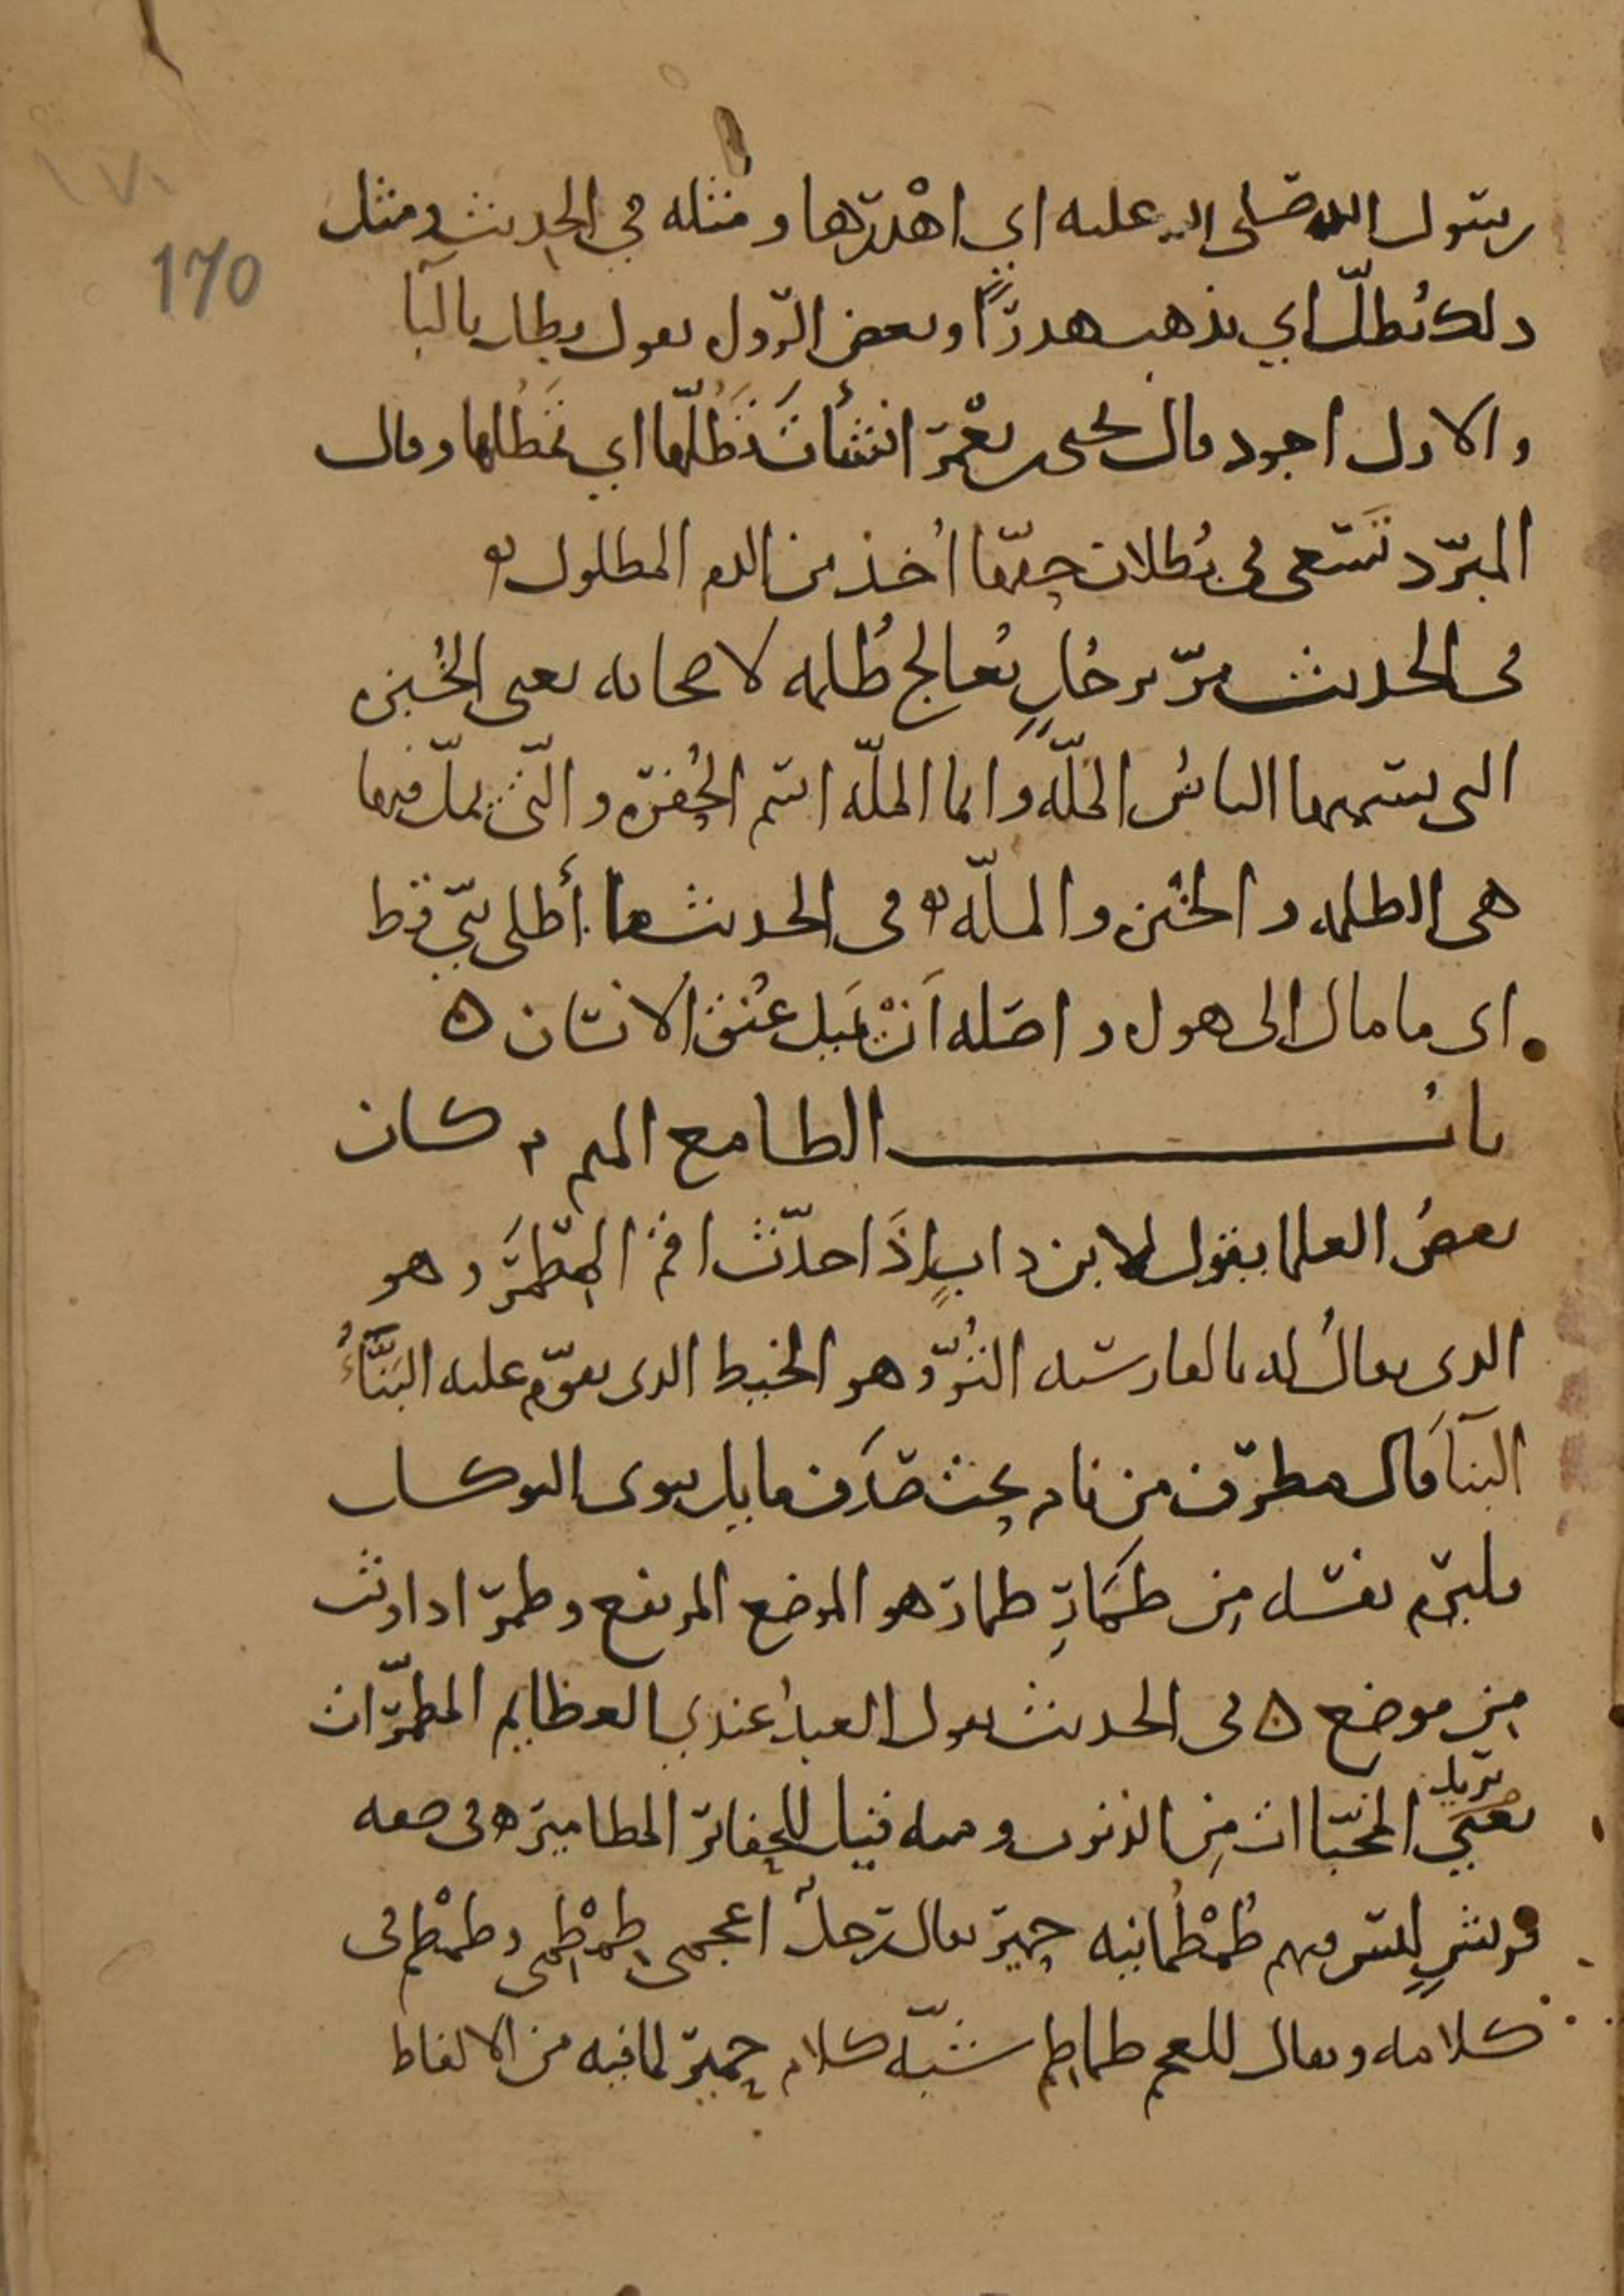 ١٧٠
170
رسول الله صلى الله عليه اي اهْدَرَها ومثله في الحديث ومثل
ذلك يُطَلّ اي يذهب هدرًا وبعض الرواه يقول بطل بالبا
والاول اجود قال يحيى بن يَعْمَرَ انشأتَ تَطُلُّها اي تمطلها وقال
المبرّد تَسعى في بُطلان حقّها اُخذ من الدم المطلول
في الحديث مرّ برجلٍ يُعالج طُلمه لاصحابه يعنى الخُبزه
التى يسميها الناسُ المَلّه وانما الملّه اسم الحُفرَه والّتى يملّ فيها
هى الطلمه والخُبز والملّه في الحديث ما أطلى نبّي قط
اى ما مال الى هوى واصله اَنْ تَميل عُنق الانسان ه
باب الطا مع الميم كان
بعضُ العلما يقول لابن دابٍ إذَا حدّثت اقم المِطْمَرَ وهو
الذى يقالُ له بالفارسيه التُّرُّ وهو الخيط الذى يقوّم عليه البَنَّاءُ
البنآَ قال مطرّف من نام تحت صَدَفٍ مايل ينوى التوكل
فليَرْم نفسه من طَمَارِ طمار هو الموضع المرتفع وطمرَ اذا وثب
من موضع ه في الحديث يقول العبدُ عندى العظايم المطمّرات
يريد
يعني المخبّاات من الذنوب ومنه قيل للحفائر المطامير ه في صفه
قريشٍ ليس فيهم طُمْطُمانيه حِمْيَر يقال رجلٌ اعجمى طِمْطِمى وطمْطم في
كلامه ويقال للعجم طماطِم شبّه كلام حِمْيَر لما فيه من الالفاظ